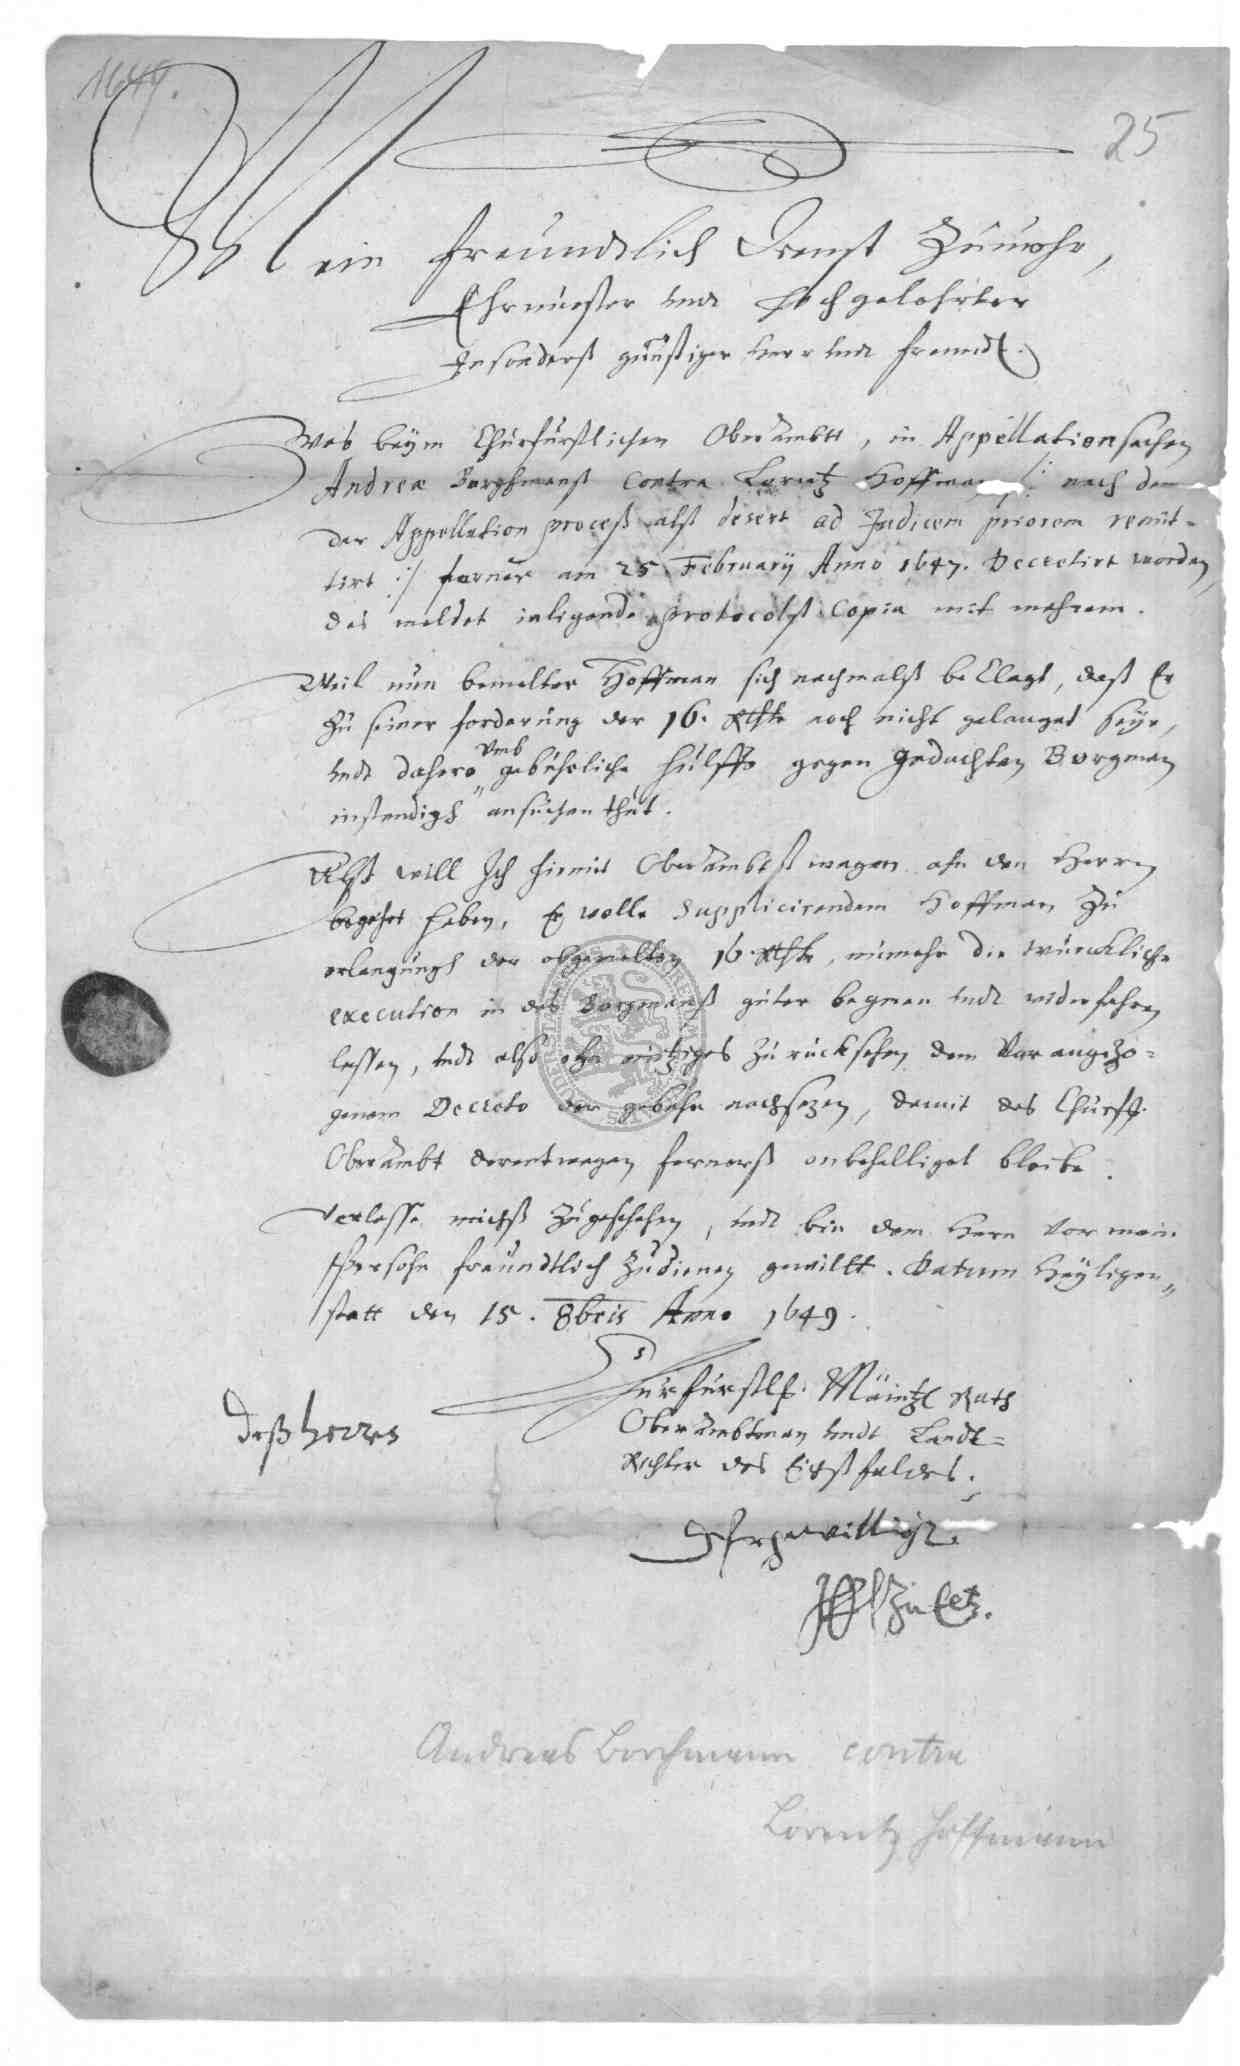 1649.
25
Mein freundtlich Dienst Zuuohr,
Ehrnuester undt Hochgelahrter
Insonderß günstiger Herr undt Freundt.
Was beÿm Churfürstlichen Oberambtt, in Appellation sachen
Andreæ Borghmanß contra Lorentz Hoffman /: nach dem
der Appellation proceß alß desert ad Judicem priorem remit-
tirt :/ ferner am 25 Februarÿ Anno 1647. Decretirt worden,
das meldet inligende protocolß Copia mit mehrem.
Weil nun bemelter Hoffman sich nachmalß beclagt, daß Er
zu seiner forderung der 16. Rthlr noch nicht gelanget seÿe,
undt dahero umb gebührliche hülffe gegen gedachten Borgman
instendigh ansuchen thut.
Alß will Ich hiemit Oberambtß wegen ahn den Herrn
begehrt haben, Er wolle Supplicirendem Hoffman Zu
erlangungh der obgemelten 16 Rthlr, nunmehr die würckliche
execution in des Borgmanß güter undt widerfahren
lassen, undt also ohn einiges Zurücksehen dem Vorangezo-
genem Decreto der gebühr nachsezen, damit das Churfl.
Oberambt derentwegen fernerß onbehelliget bleibe.
Verlasse michß Zugeschehen, undt bin dem Hern vor mein
Persohn freundtlich Zudienen gewillt. Datum Heÿligen„
statt den 15. 8bris Anno 1649.
Churfürstl. Mäintz. Rath
Oberambtman undt Landt-
Richter des Eichßfeldes.
Deß Herren
Andreas Borchmann contra
Lorentz Hoffmann